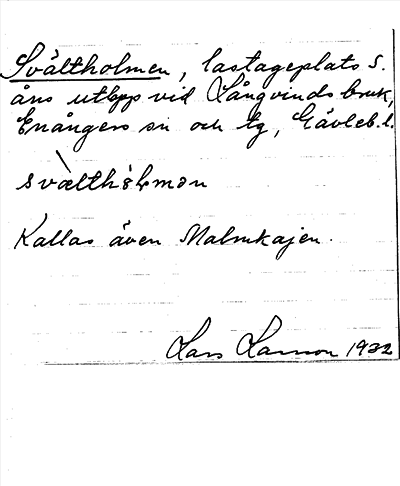 Svältholmen, lastageplats S.
åns utlopp vid Långvinds bruk,
Enångers sn och tg, Gävleb.l.
svælthòlmən
Kallas även Malmkajen.
Lars Larsson 1932